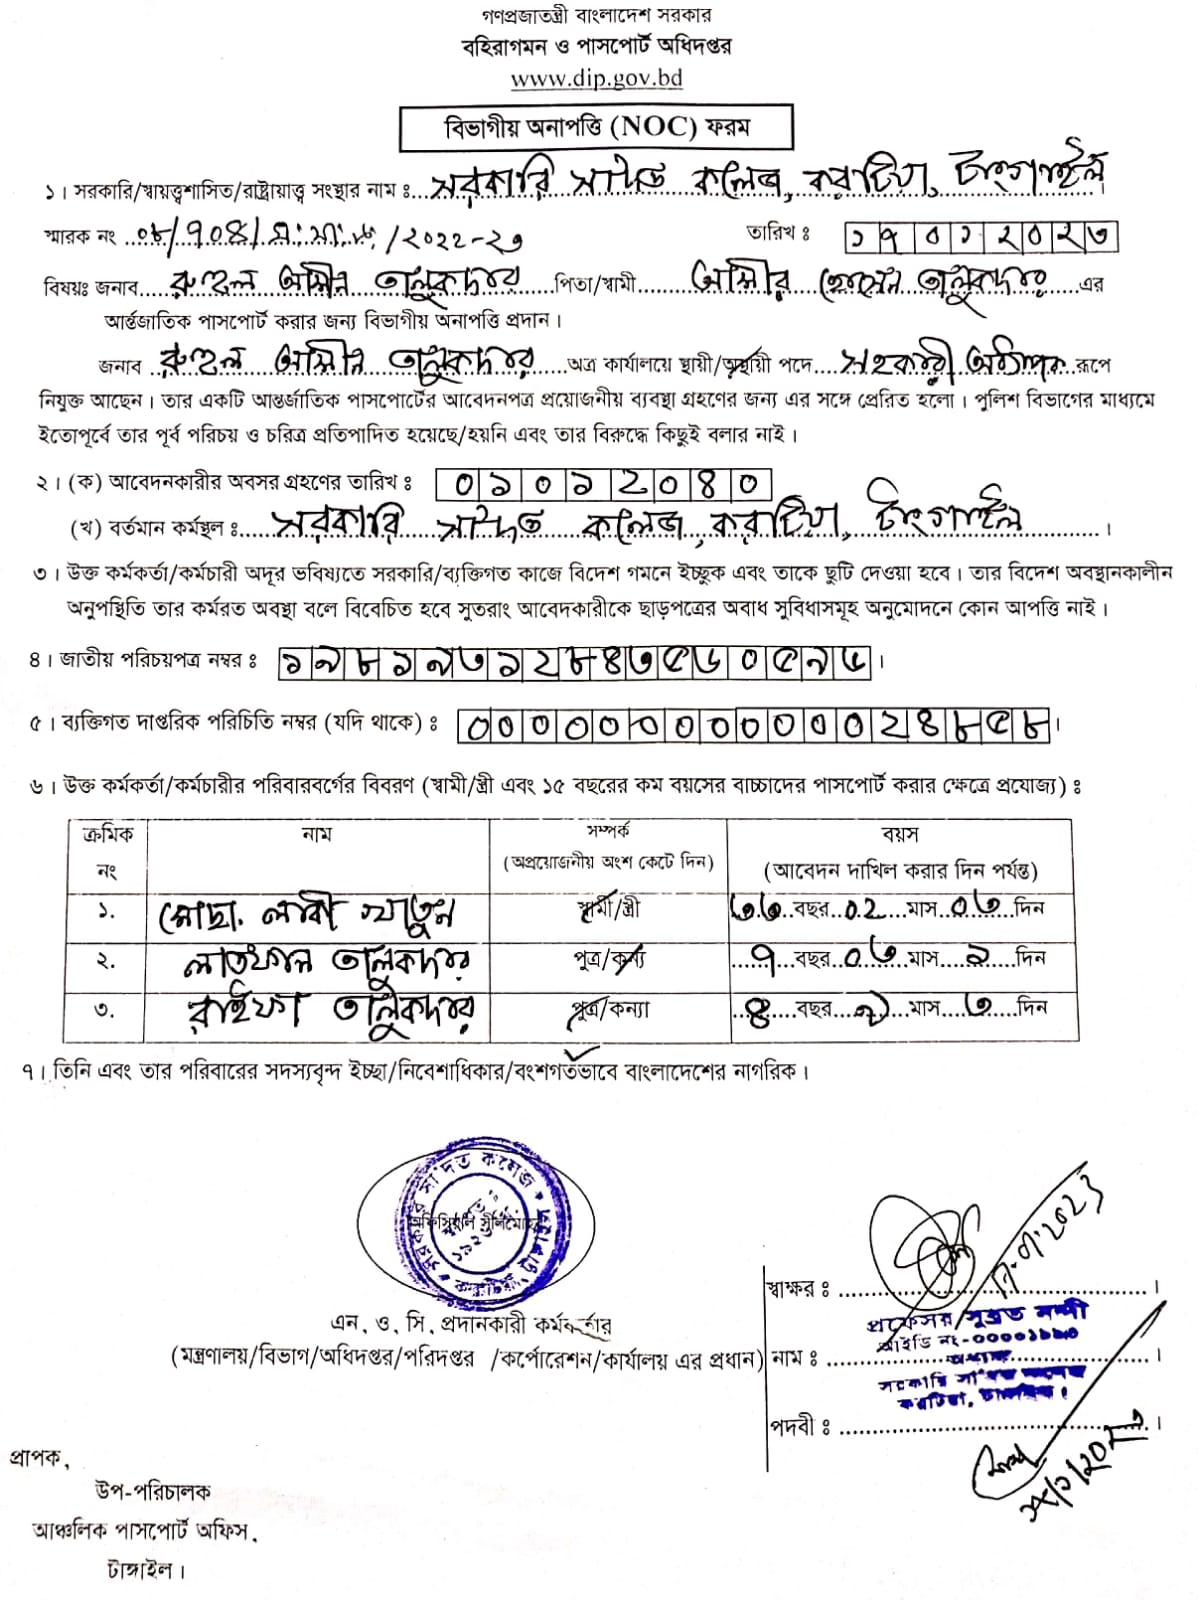 গণপ্রজাতন্ত্রী বাংলাদেশ সরকার
বহিরাগমন ও পাসপোর্ট অধিদপ্তর
www.dip.gov.bd
বিভাগীয় অনাপত্তি (NOC) ফরম
১। সরকারি/স্বায়ত্ত্বশাসিত/রাষ্ট্রায়াত্ত্ব সংস্থার নাম ঃ সরকারি সা'দত কলেজ, করটিয়া, টাংগাইল
স্মারক নং ০৮/৭০৪/স:সা:ক:/২০২২-২৩ তারিখ ঃ ১৭০১২০২৩
বিষয়ঃ জনাব রুহুল আমীন তালুকদার পিতা/স্বামী আমীর হোসেন তালুকদার এর
আর্ন্তজাতিক পাসপোর্ট করার জন্য বিভাগীয় অনাপত্তি প্রদান।
জনাব রুহুল আমীন তালুকদার অত্র কার্যালয়ে স্থায়ী/অস্থায়ী পদে সহকারী অধ্যাপক রূপে
নিযুক্ত আছেন। তার একটি আন্তর্জাতিক পাসপোর্টের আবেদনপত্র প্রয়োজনীয় ব্যবস্থা গ্রহণের জন্য এর সঙ্গে প্রেরিত হলো। পুলিশ বিভাগের মাধ্যমে
ইতোপূর্বে তার পূর্ব পরিচয় ও চরিত্র প্রতিপাদিত হয়েছে/হয়নি এবং তার বিরুদ্ধে কিছুই বলার নাই।
২। (ক) আবেদনকারীর অবসর গ্রহণের তারিখ ঃ ০১০১২০৪০
(খ) বর্তমান কর্মস্থল ঃ সরকারি সা'দত কলেজ, করটিয়া, টাংগাইল।
৩। উক্ত কর্মকর্তা/কর্মচারী অদূর ভবিষ্যতে সরকারি/ব্যক্তিগত কাজে বিদেশ গমনে ইচ্ছুক এবং তাকে ছুটি দেওয়া হবে। তার বিদেশ অবস্থানকালীন
অনুপস্থিতি তার কর্মরত অবস্থা বলে বিবেচিত হবে সুতরাং আবেদকারীকে ছাড়পত্রের অবাধ সুবিধাসমূহ অনুমোদনে কোন আপত্তি নাই।
৪। জাতীয় পরিচয়পত্র নম্বর ঃ ১৯৮১৯৩১২৮৪৩৫৬০৫৯৬।
৫। ব্যক্তিগত দাপ্তরিক পরিচিতি নম্বর (যদি থাকে) ঃ ০০০০০০০০০০০০০২৪৮৫৮।
৬। উক্ত কর্মকর্তা/কর্মচারীর পরিবারবর্গের বিবরণ (স্বামী/স্ত্রী এবং ১৫ বছরের কম বয়সের বাচ্চাদের পাসপোর্ট করার ক্ষেত্রে প্রযোজ্য) ঃ
ক্রমিক নং নাম সম্পর্ক (অপ্রয়োজনীয় অংশ কেটে দিন) বয়স (আবেদন দাখিল করার দিন পর্যন্ত)
১. মোছা. লাবী খাতুন স্বামী/স্ত্রী ৩৩ বছর ০২ মাস ০৬ দিন
২. লাতফাল তালুকদার পুত্র/কন্যা ৭ বছর ০৬ মাস ৯ দিন
৩. রাইফা তালুকদার পুত্র/কন্যা ৪ বছর ৯ মাস ৩ দিন
৭। তিনি এবং তার পরিবারের সদস্যবৃন্দ ইচ্ছা/নিবেশাধিকার/বংশগতভাবে বাংলাদেশের নাগরিক।
সরকারি সা'দত কলেজ
অফিসিয়াল সীলমোহর
করটিয়া, টাঙ্গাইল
এন, ও, সি, প্রদানকারী কর্মকর্তার
(মন্ত্রণালয়/বিভাগ/অধিদপ্তর/পরিদপ্তর /কর্পোরেশন/কার্যালয় এর প্রধান)
স্বাক্ষর ঃ 17.01.2023
প্রফেসর সুব্রত নন্দী
আইডি নং-০০০০১৯৯০
নাম ঃ অধ্যক্ষ
সরকারি সা'দত কলেজ
করটিয়া, টাঙ্গাইল।
পদবী ঃ
প্রাপক,
উপ-পরিচালক
আঞ্চলিক পাসপোর্ট অফিস,
টাঙ্গাইল।